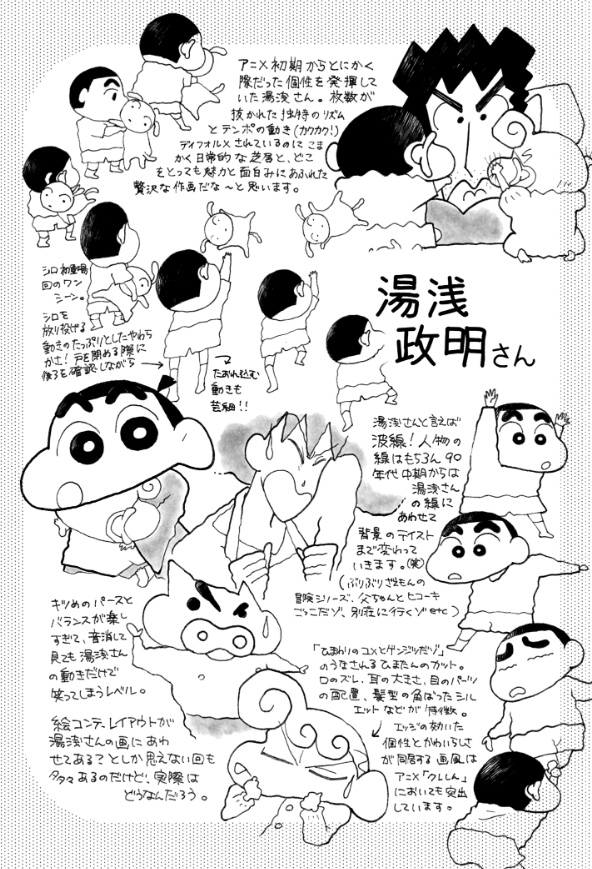 アニメ初期からとにかく
際だった個性を発揮して
いた湯浅さん。枚数が
抜かれた独特のリズム
とテンポの動き(カクカク!)
ディフォルメされているのにこま
かく日常的な芝居と、どこ
をとっても魅力と面白みにあふれた
贅沢な作画だな〜と思います。
シロ初登場
回のワン
シーン。
シロを
放り投げる
動きのたっぷりとしたやわら
かさ!戸を閉める際に
後ろを確認しながら→
→
たおれ込む
動きも
芸細!!
湯浅
政明さん
湯浅さんと言えば
波線!人物の
線はもちろん90
年代中期からは
湯浅さん
の線に
あわせて
背景のテイスト
まで変わって
いきます。(笑)
(ぶりぶりざえもんの
冒険シリーズ、父ちゃんとヒコーキ
ごっこだゾ、別荘に行くゾetc)
キツめのパースと
バランスが楽し
すぎて、音消して
見ても湯浅さん
の動きだけで
笑ってしまうレベル。
「ひまわりのユメとゲンジツだゾ」
のうなされるひまたんのカット。
口のズレ、耳の大きさ、目のパーツ
の配置、髪型の角ばったシル
エットなどが特徴。
エッジの効いた
個性とかわいらしさ
が同居する画風は
アニメ「クレしん」
においても突出
しています。
絵コンテ、レイアウトが
湯浅さんの画にあわ
せてある?としか思えない回も
多々あるのだけど、実際は
どうなんだろう。